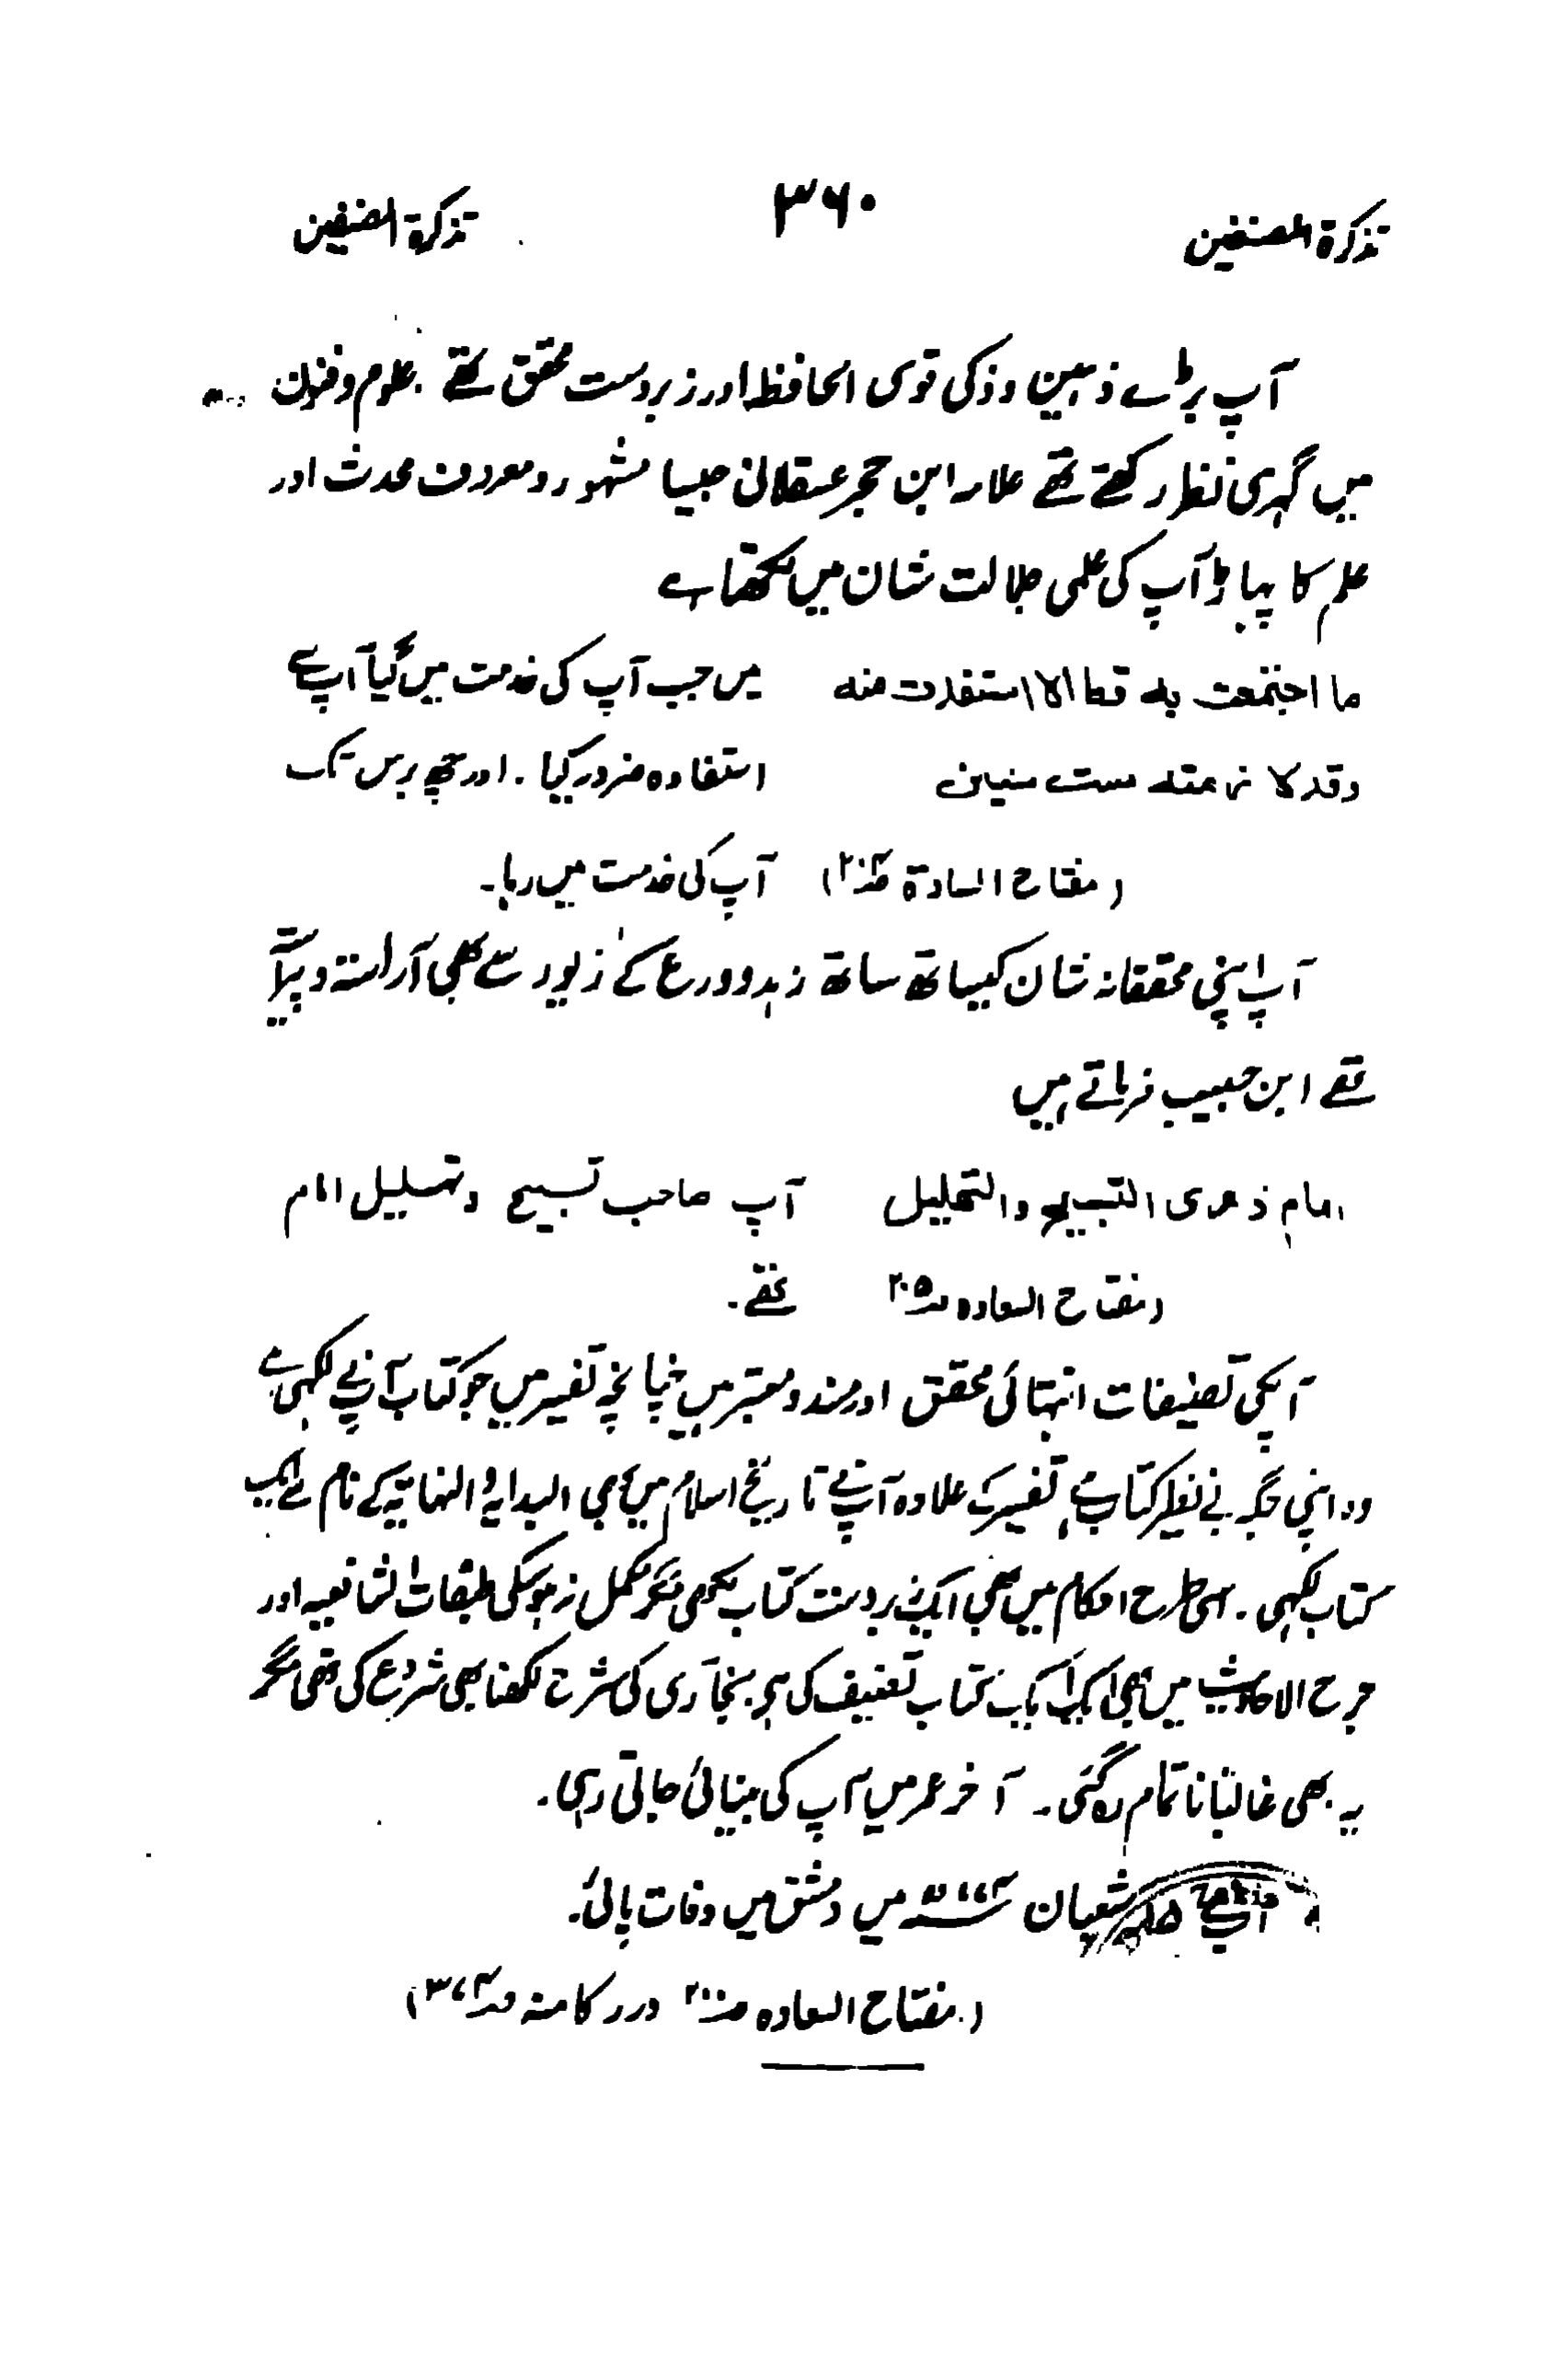 تذکرة المصنفین ۳۶۰ تذکرة المصنفین
آپ بڑے ذہین وذکی قوی الحافظ اور زبردست محقق تھے . علوم وفنون
میں گہری نظر رکھتے تھے علامہ ابن حجر عسقلانی جیسا مشہور ومعروف محدث اور
علم کا پہاڑ آپ کی علمی جلالت شان میں لکھتا ہے
ما اجتمعت بہ قط الا استفدت منہ میں جب آپ کی خدمت میں گیا آپ سے
وقد لازمتہ ست سنین استفادہ ضرور کیا . اور چھ برس تک
(مفتاح السادة آپ کی خدمت میں رہا ۔
آپ اپنی محققانہ شان کیساتھ ساتھ زہد وورع کے زیور سے بھی آراستہ و پیراستہ
تھے ابن حبیب فرماتے ہیں
امام ذوی التسبیح والتھلیل آپ صاحب تسبیح وتہلیل امام
(مفتاح السعادہ صـ ۲۰۵ تھے .
آپکی تصنیفات انتہائی محقق اور مستند ومعتبر ہیں چنانچہ تفسیر میں جو کتاب آپنے لکھی ہے
وہ اپنی جگہ بے نظیر کتاب ہے تفسیر کے علاوہ آپنے تاریخ اسلام میں بھی البدایة والنہایة کے نام سے ایک
کتاب لکھی . اسی طرح احکام میں بھی ایک زبردست کتاب لکھی مگر مکمل نہ ہوسکی طبقات الشافعیہ اور
جرح الاحادیث میں بھی ایک ایک کتاب تصنیف کی ہے بخاری کی شرح لکھنا بھی شروع کی تھی مگر
یہ بھی غالباً ناتمام رہ گئی ۔ آخر عمر میں آپ کی بینائی جاتی رہی .
آپنے شعبان ۷۷۴ھ میں دمشق میں وفات پائی ۔
(مفتاح السعادہ درر کامنہ صـ ۳۷۴)